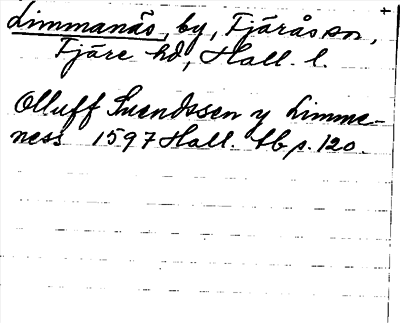 Limmanäs, by, Fjärås sn,
Fjäre hd, Hall. l.
Olluff Suendssen y Limme-
ness 1597 Hall. tb p. 120.